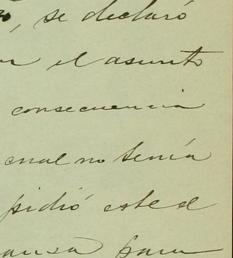 se declaró
el asunto
consecuencia
cual no tenía
pidió este el
para